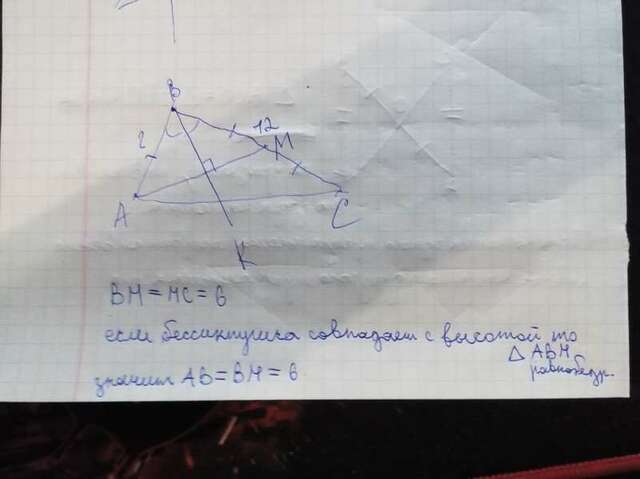 B
12
M
A
C
K
BM = MC = 6
если бессиктриса совпадает с высотой то
△ ABM
равнобедр.
значит AB = BM = 6